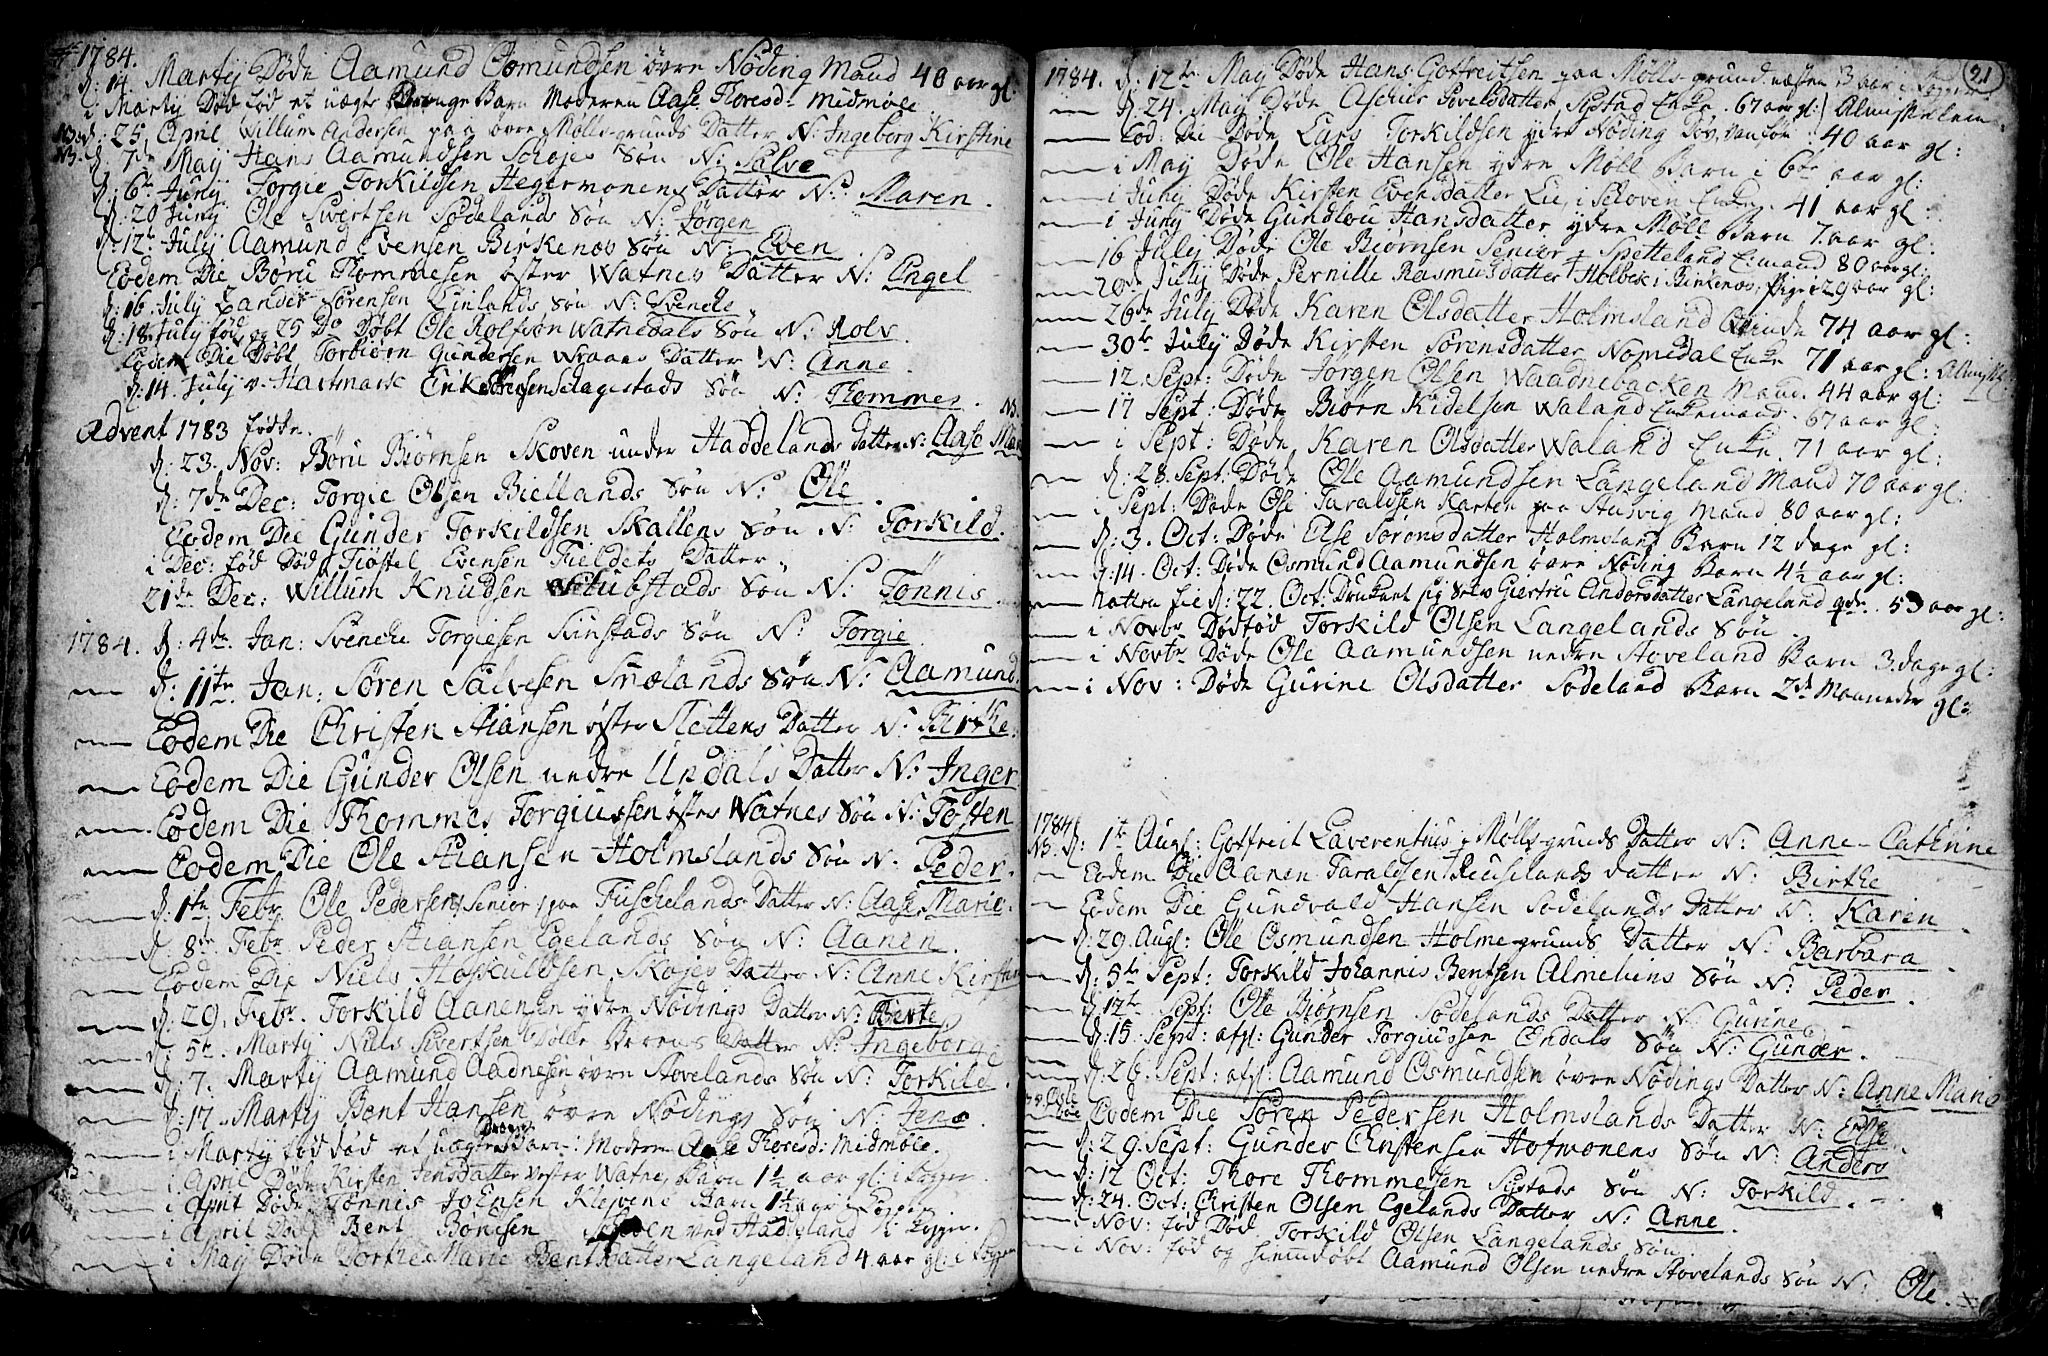 1784.
d: 14. Martij Døde Aamund Osmundsen øvre Nøding Mand 40 aar gl:
i Martij Død fød et uægte Drenge Barn Moderen Aase Thoresd: Midmøle
NB. d: 25 April Willum Andersen paa øvre Mølls-grunds Datter N: Ingeborg Kirstine
NB. d: 7de May Hans Aamundsen Schøjes Søn N: Salve
d: 6te Junij Torgie Torkildsen Hegermonens Datter N: Maren.
d: 20 Junij Ole Sivertsen Sodelands Søn N: Jørgen
d: 12te Julij Aamund Evensen Birkenæs Søn N: Even
Eodem Die Børu Thommesen øster Watnes Datter N: Engel
d: 16 Julij Sørensen Søn N: Svenche
d: 18. Julij fød og 25 Do Døbt Ole Rolfsøn Watnedals Søn N: Rolv.
Eodem Die Døbt Torbiørn Gundersen Wraaes Datter N: Anne.
d: 14. Julij v. Hartmark Erik Slagestads Søn N: Thommes.
Advent 1783 fødte.
d: 23. Nov: Børu Biørnsen Skoven under Haddelands datter N: Aase
d: 7de Dec: Torgie Olsen Biellands Søn N: Ole.
Eodem Die Gunder Torkildsen Skallens Søn N: Torkild.
i Dec: fød Død Tiøstel Evensen Fieldets Datter.
21de Dec: Willum Knudsen Stubstads Søn N: Tønnis.
1784. d: 4de Jan: Svenche Torgiesen Søn N: Torgie.
d: 11te Jan: Søren Salvesen Smelands Søn N: Aamund.
Eodem Die Christen Stiansen øster Slettens Datter N: Birthe.
Eodem Die Gunder Olsen nedre Undals Datter N: Inger
Eodem Die Thommes Torgiussen øster Watnes Søn N: Tosten
Eodem Die Ole Stiansen Holmslands Søn N: Peder.
d: 1te Febr. Ole Pedersen Senior paa Fuschelands Datter N: Aase Marie.
d: 8de Febr. Peder Stiansen Egelands Søn N: Aanen.
Eodem Die Niels Hoskuldsen Skøjes Datter N: Anne Kirsten
d: 29. Febr. Torkild Aanensen ydre Nødings Datter N: Berte
d: 5te Martij Niels Sivertsen Datter N: Ingeborg
d: 7. Martij Aamund Aadnesen øvre Stovelands Søn N: Torkild.
d: 17. Martij Bent Hansen øvre Nødings Søn N: Jens
i Martij fød død et uægte Drenge Barn: Moderen Aase Thoresd: Midmøle.
i April Døde Kirsten Jensdatter vester Watne, Barn 1½ aar gl: i kopper.
i April Døde Tønnis Johensen Klevene Barn 1½ aar i Kopper
i April Død Bent Bønesen Skoven ved Haddeland i kopper.
i May Døde Dorthe Marie Bentsdatter Langeland 4 aar gl: i kopper

21
1784. d: 12te May Døde Hans Gotfreitsen paa Mølls-grund næsten 3 aar i kopper
d: 24. May Døde Aschier Povelsdatter Systad Enke. 67 aar gl: Almisselem
Eod: Die Døde Lars Torkildsen ydre Nøding Døv, 40 aar gl:
i May Døde Ole Hansen ydre Møll Barn i 6te aar gl:
i Junij Døde Kirsten Evensdatter Lie, i Schoven Enke. 41 aar gl:
i Junij Døde Gundlou Hansdatter ydre Møll Barn 7. aar gl:
16 Julij Døde Ole Biørnsen Senior Spetteland Emand 80 aar gl:
20de Julij Døde Pernille Rasmusdatter Holbek i Birkenes, Pige 29 aar gl:
26de Julij Døde Karen Olsdatter Holmsland Qvinde 74 aar gl:
30te Julij Døde Kirsten Sørensdatter Nomedal Enke 71 aar gl:
12. Sept: Døde Jørgen Olsen Waadnebacken Mand. 44 aar gl:
17 Sept: Døde Biørn Kidelsen Waland Enkemand. 67 aar gl:
i Sept: Døde Karen Olsdatter Waland Enke. 71 aar gl:
d: 28. Sept: Døde Ole Aamundsen Langeland Mand 70 aar gl:
i Sept: Døde Ole Taraldsen Karten paa Mand 80 aar gl:
d: 3. Oct: Døde Else Sørensdatter Holmsland Barn 12 dage gl:
d: 14. Oct: Døde Osmund Aamundsen øvre Nøding Barn 4½ aar gl:
Natten til d: 22. Oct: Druknet sig selv Giertru Andersdatter Langeland qde. 53 aar gl:
i Novbr Dødfød Torkild Olsen Langelands Søn.
i Novbr Døde Ole Aamundsen nedre Stoveland Barn 3. dage gl:
i Nov: Døde Gurine Olsdatter Sodeland Barn 2de Maaneder gl:
1784
NB. d: 1te Aug: Gotfreit Laverentius Mølls-grunds Datter N: Anne-Cathrine
Eodem Die Aanen Taraldsen Reuselands datter N: Birthe
Eodem Die Gundvald Hansen Sodelands Datter N: Karen.
d: 29. Aug: Ole Osmundsen Holme-grunds Datter N: Barbara.
d: 5te Sept: Torkild Johannis Bentsen Almeliens Søn N: Peder.
d: 12te Sept: Ole Biørnsen Sodelands Datter N: Gurine
d: 15. Sept: afgl: Gunder Torgiussen Endals Søn N: Gunder.
d: 26. Sept: afgl: Aamund Osmundsen øvre Nødings Datter N: Anne Marie
Eodem Die Søren Pedersen Holmslands Datter N: Else.
d: 29. Sept: Gunder Christensen Hofmonens Søn N: Anders
d: 12 Oct: Thore Thommesen Systads Søn N: Torkild.
d: 24. Oct: Christen Olsen Egelands Datter N: Anne.
i Nov: fød Død Torkild Olsen Langelands Søn.
i Nov: fød og hiemmedøbt Aamund Olsen nedre Stovelands Søn N: Ole.